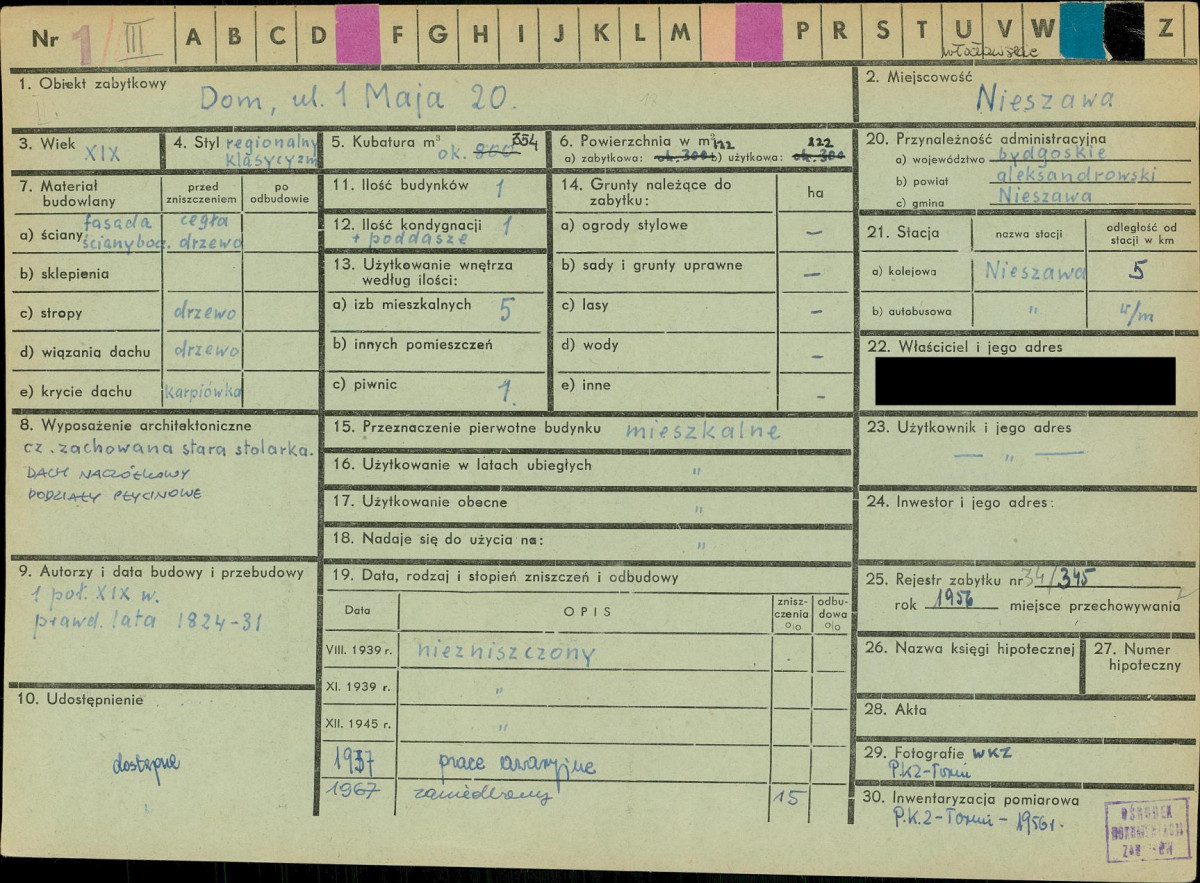 Nr 1/III A B C D F G H I J K L M P R S T U V W Z
włocławskie
1. Obiekt zabytkowy
Dom, ul. 1 Maja 20.
2. Miejscowość
Nieszawa
3. Wiek XIX
4. Styl regionalny
klasycyzm
5. Kubatura m³ 354
ok. 800
6. Powierzchnia w m² 122 122
a) zabytkowa: ok. 300 b) użytkowa: ok. 300
20. Przynależność administracyjna
a) województwo bydgoskie
b) powiat aleksandrowski
c) gmina Nieszawa
7. Materiał budowlany
przed zniszczeniem
po odbudowie
a) ściany fasada cegła
ściany boc. drzewo
b) sklepienia
c) stropy drzewo
d) wiązania dachu drzewo
e) krycie dachu karpiówka
11. Ilość budynków 1
12. Ilość kondygnacji 1
+ poddasze
13. Użytkowanie wnętrza
według ilości:
a) izb mieszkalnych 5
b) innych pomieszczeń
c) piwnic 1.
14. Grunty należące do
zabytku:
ha
a) ogrody stylowe –
b) sady i grunty uprawne –
c) lasy –
d) wody –
e) inne –
21. Stacja
nazwa stacji
odległość od
stacji w km
a) kolejowa Nieszawa 5
b) autobusowa " w/m
22. Właściciel i jego adres
8. Wyposażenie architektoniczne
cz. zachowana stara stolarka.
DACH NACZÓŁKOWY
PODZIAŁY PŁYCINOWE
15. Przeznaczenie pierwotne budynku mieszkalne
16. Użytkowanie w latach ubiegłych "
17. Użytkowanie obecne "
18. Nadaje się do użycia na: "
23. Użytkownik i jego adres
— " —
24. Inwestor i jego adres:
9. Autorzy i data budowy i przebudowy
1 poł. XIX w.
prawd. lata 1824-31
19. Data, rodzaj i stopień zniszczeń i odbudowy
Data
OPIS
znisz-
czenia
o/o
odbu-
dowa
o/o
VIII. 1939 r. niezniszczony
XI. 1939 r. "
XII. 1945 r. "
1957 prace awaryjne
1967 zaniedbany 15
25. Rejestr zabytku nr 34/345
rok 1956 miejsce przechowywania
26. Nazwa księgi hipotecznej
27. Numer
hipoteczny
10. Udostępnienie
dostępne
28. Akta
29. Fotografie WKZ
P.KZ-Toruń
30. Inwentaryzacja pomiarowa
P.K.Z-Toruń-1956r.
OŚRODEK
DOKUMENTACJI
ZABYTKÓW